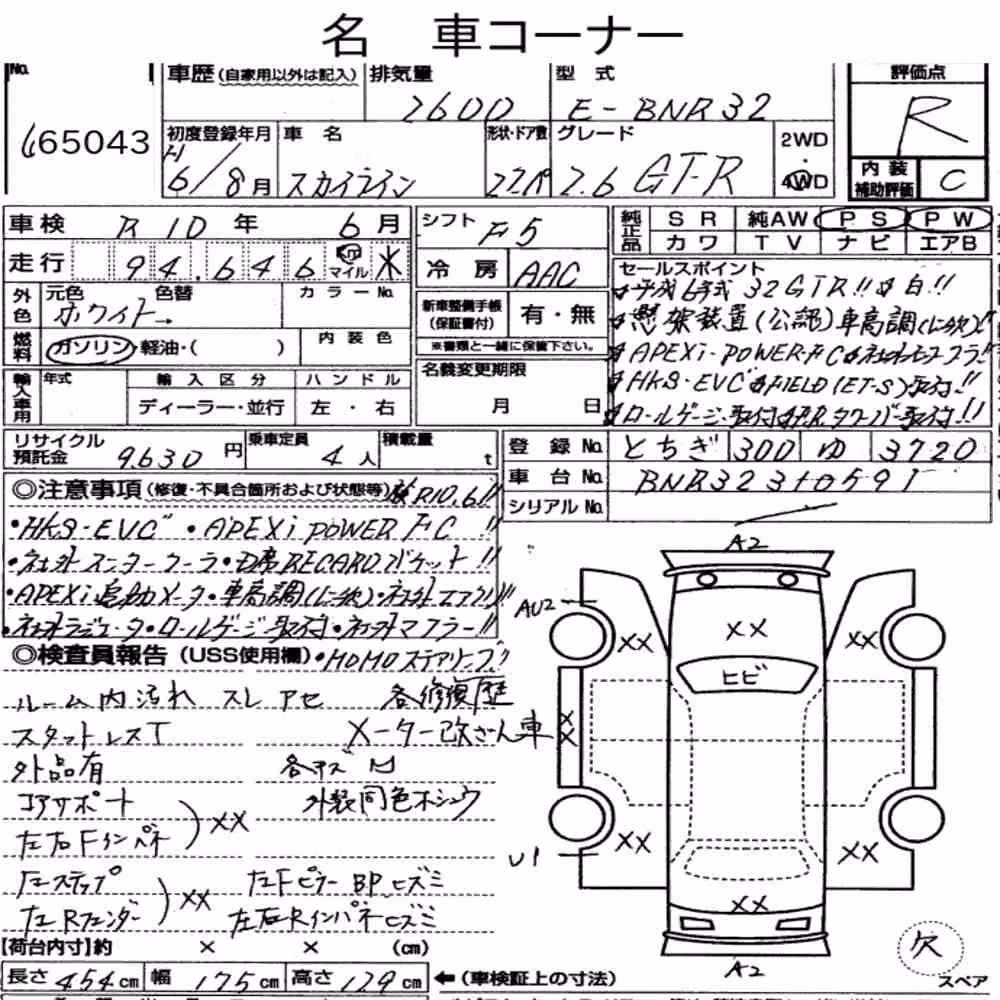 名 車コーナー
No.
665043
車歴(自家用以外は記入) 排気量 型式 評価点
2600 E-BNR32 R
初度登録年月 車名 形状・ドア数 グレード 2WD・4WD
H6/8月 スカイライン 22ペ 2.6 GT-R
内装補助評価 C
車検 R10年 6月
シフト F5
純正品 SR 純AW PS PW
カワ TV ナビ エアB
走行 94,646 km マイル
冷房 AAC
外色 元色 色替 カラーNo.
ホワイト→
新車整備手帳(保証書付) 有・無
※書類と一緒に保管下さい。
燃料 ガソリン・軽油・( ) 内装色
セールスポイント
平成6年式 32GTR!! 白!!
懸架装置(公認)車高調(に改)!!
APEXi-POWER-FC 社外マフラ!!
HKS-EVC FIELD(ET-S)取付!!
ロールゲージ取付 F.R.タワーバー取付!!
輸入車用 年式 輸入区分 ハンドル
ディーラー・並行 左・右
名義変更期限
月 日
リサイクル預託金 9,630円 乗車定員 4人 積載量 t
登録No. とちぎ 300 ゆ 3720
車台No. BNR32310591
シリアルNo.
◎注意事項(修復・不具合箇所および状態等) 検R10.6!!
・HKS-EVC・APEXi POWER FC!!
・社外インタークーラ・D席RECAROバケット!!
・APEXi追加メータ・車高調(に改)・社外エアクリ!!
・社外ラジエータ・ロールゲージ取付・社外マフラー!!
◎検査員報告(USS使用欄)・MOMOステアリング
ルーム内汚れ スレ アセ 各修復歴
スタットレスT メーター改ざん車
外品有 各キズ凹
コアサポート 外装同色ホシュウ
左右Fインパネ
XX
左ステップ 左Fピラー BPヒズミ
左Rフェンダー 左右Rインパネヒズミ
XX
【荷台内寸】約 × × (cm)
長さ 454cm 幅 175cm 高さ 129cm ←(車検証上の寸法)
A2
AU2
XX XX XX
ヒビ
XX
XX XX
U1
XX
A2
欠
スペア